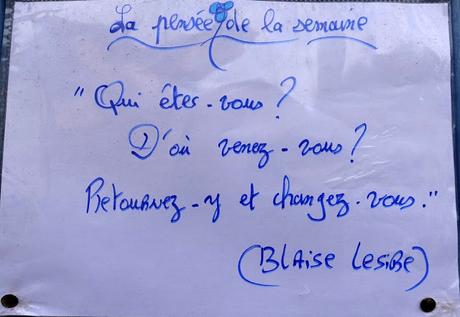 La pensée de la semaine
"Qui êtes-vous ?
D'où venez-vous ?
Retournez-y et changez-vous."
(Blaise Lesire)